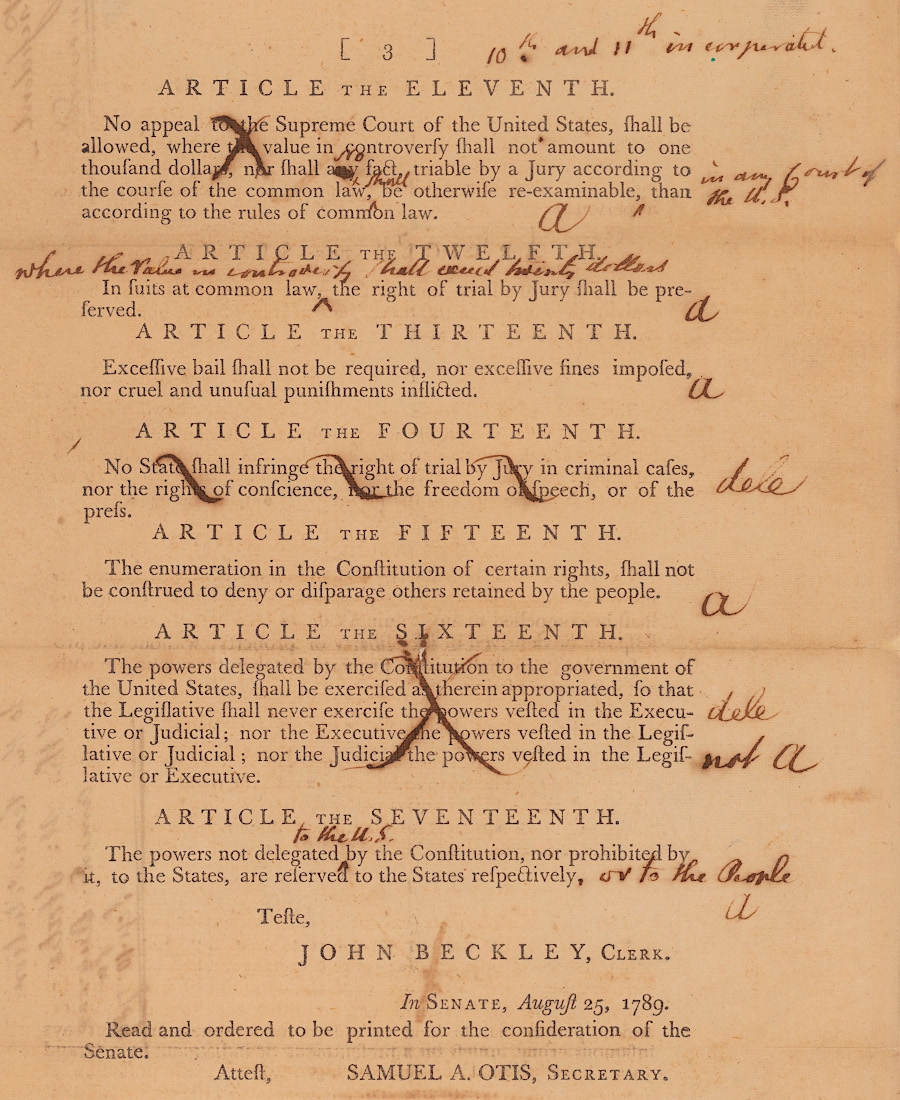 [ 3 ] 10th and 11th incorporated.
ARTICLE THE ELEVENTH.
No appeal to the Supreme Court of the United States, ſhall be
allowed, where the value in controverſy ſhall not amount to one
No
thouſand dollars, nor ſhall any fact, triable by a Jury according to in any Court of
shall
the courſe of the common law, be otherwiſe re-examinable, than the U.S.
according to the rules of common law. a
ARTICLE THE TWELFTH.
where the Value in controversy shall exceed twenty dollars
In ſuits at common law, ^ the right of trial by Jury ſhall be pre-
ſerved. a
ARTICLE THE THIRTEENTH.
Exceſſive bail ſhall not be required, nor exceſſive fines impoſed,
nor cruel and unuſual puniſhments inflicted. a
ARTICLE THE FOURTEENTH.
No State ſhall infringe the right of trial by Jury in criminal caſes,
nor the rights of conſcience, nor the freedom of ſpeech, or of the dele
preſs.
ARTICLE THE FIFTEENTH.
The enumeration in the Conſtitution of certain rights, ſhall not
be conſtrued to deny or diſparage others retained by the people. a
ARTICLE THE SIXTEENTH.
The powers delegated by the Conſtitution to the government of
the United States, ſhall be exerciſed as therein appropriated, ſo that
the Legiſlative ſhall never exerciſe the powers veſted in the Execu- dele
tive or Judicial; nor the Executive the powers veſted in the Legiſ-
lative or Judicial; nor the Judicial the powers veſted in the Legiſ- not a
lative or Executive.
ARTICLE THE SEVENTEENTH.
to the U.S.
The powers not delegated ^ by the Conſtitution, nor prohibited by
it, to the States, are reſerved to the States reſpectively, or to the People
a
Teſte,
JOHN BECKLEY, CLERK.
In SENATE, Auguſt 25, 1789.
Read and ordered to be printed for the conſideration of the
Senate.
Atteſt, SAMUEL A. OTIS, SECRETARY.